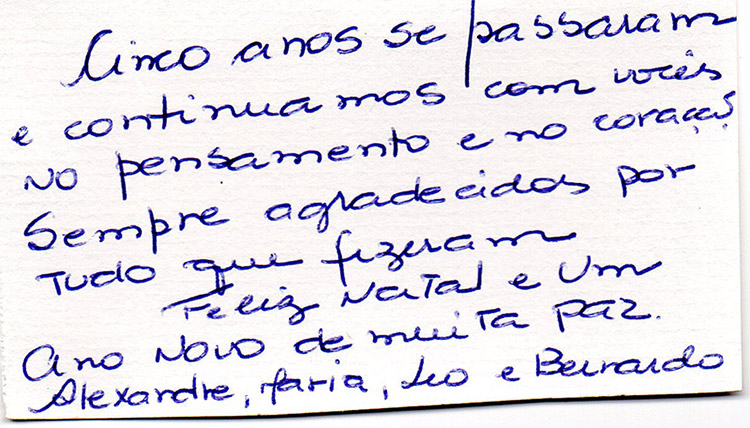 Cinco anos se passaram
e continuamos com vocês
no pensamento e no coração
Sempre agradecidos por
tudo que fizeram
Feliz Natal e um
Ano Novo de muita paz.
Alexandre, Maria, Leo e Bernardo